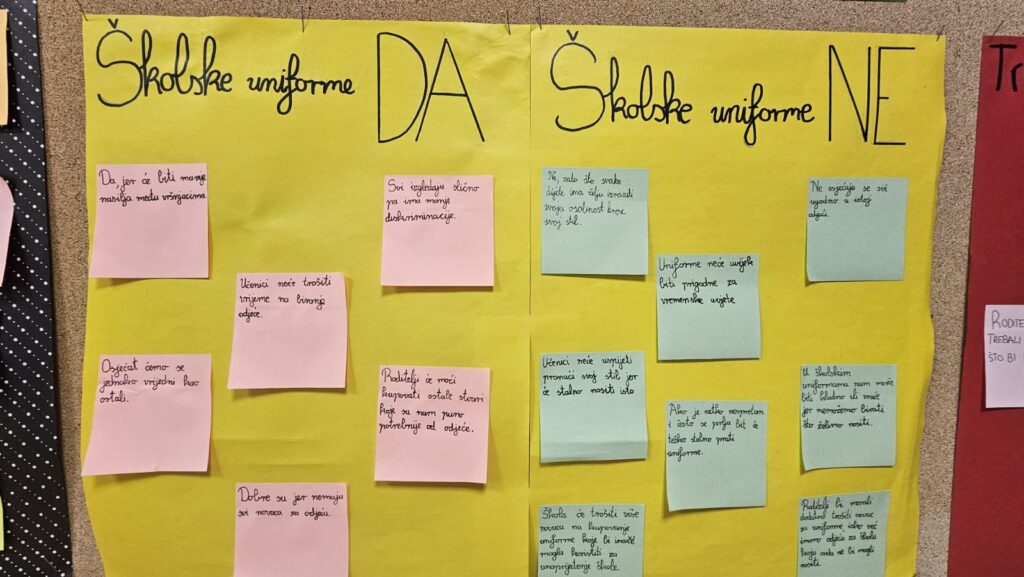 Školske uniforme DA
Da, jer će biti manje
nasilja među vršnjacima.
Svi izgledaju slično
pa ima manje
diskriminacije.
Učenici neće trošiti
vrijeme na biranje
odjeće.
Osjećat ćemo se
jednako vrijedni kao
ostali.
Roditelji će moći
kupovati ostale stvari
koje su nam puno
potrebnije od odjeće.
Dobre su jer nemaju
svi novaca za odjeću.
Školske uniforme NE
Ne, zato što svako
dijete ima želju izraziti
svoju osobnost kroz
svoj stil.
Ne osjećaju se svi
ugodno u istoj
odjeći.
Uniforme neće uvijek
biti prigodne za
vremenske uvjete
Učenici neće uspjeti
pronaći svoj stil jer
će stalno nositi isto
U školskim
uniformama nam može
biti hladno ili vruće
jer nemožemo birati
što želimo nositi.
Ako je netko nespretan
i često se prlja bit će
teško stalno prati
uniforme.
Škola će trošiti više
novaca na kupovanje
uniforme koje bi inače
mogla koristiti za
unaprijeđenje škole.
Roditelji bi morali
dodatno trošiti novac
za uniforme, iako već
imamo odjeću za školu
koju onda ne bi mogli
nositi.
Tr
RODITE
TREBALI
ŠTO BI